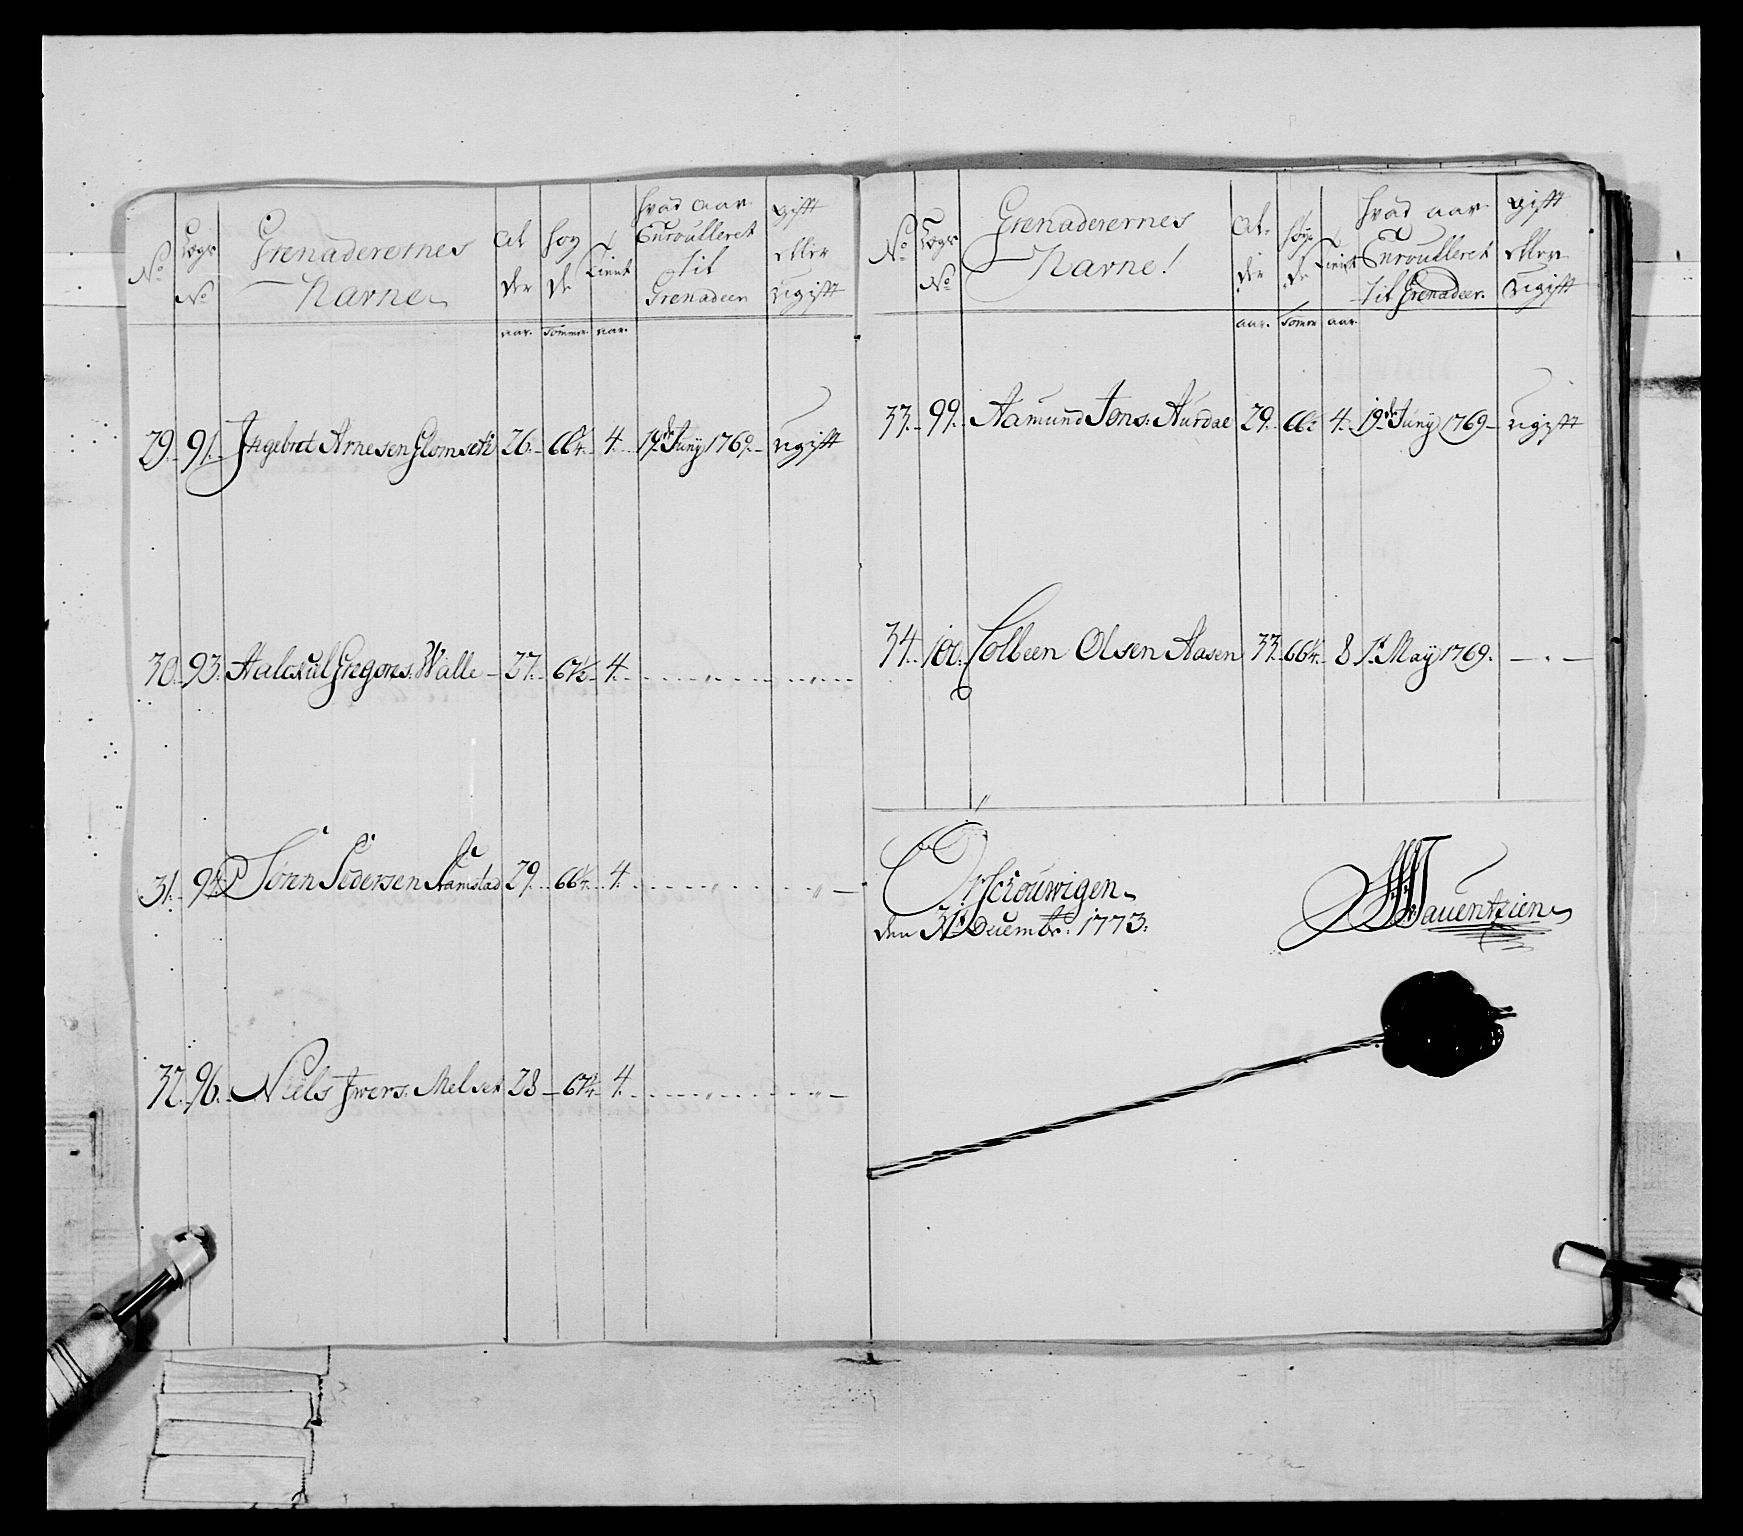 No
Lægs No
Grenaderernes Navne
Al der
høy de
tient
hvad aar Enroulleret til Grenadeer
gift eller ugift
aar. tommer aar.
29. 91. Ingebret Arnesen Glomseth 26. 66¼ 4. 19de Juny 1769. ugift
30. 93. Gregors: Walle 27. 67½ 4. " "
31. 94. Sören Pedersen Stamstad 29. 66¼ 4. " "
32. 96. Niels Iwers. Melser 28 67¼ 4. " "
No
Lægs No
Grenaderernes Navne!
Al der
høy de
tient
hvad aar Enroulleret til Grenadeer.
gift eller ugift
aar. tommer aar.
33. 99. Aamund Jons: Aurdal 29. 66: 4. 19de Juny 1769 ugift
34. 100. Colbeen Olsen Aasen 33. 66¼ 8 1t May 1769. — " —
Ørschouwigen
den 31t Decembr: 1773.
Wauentzien